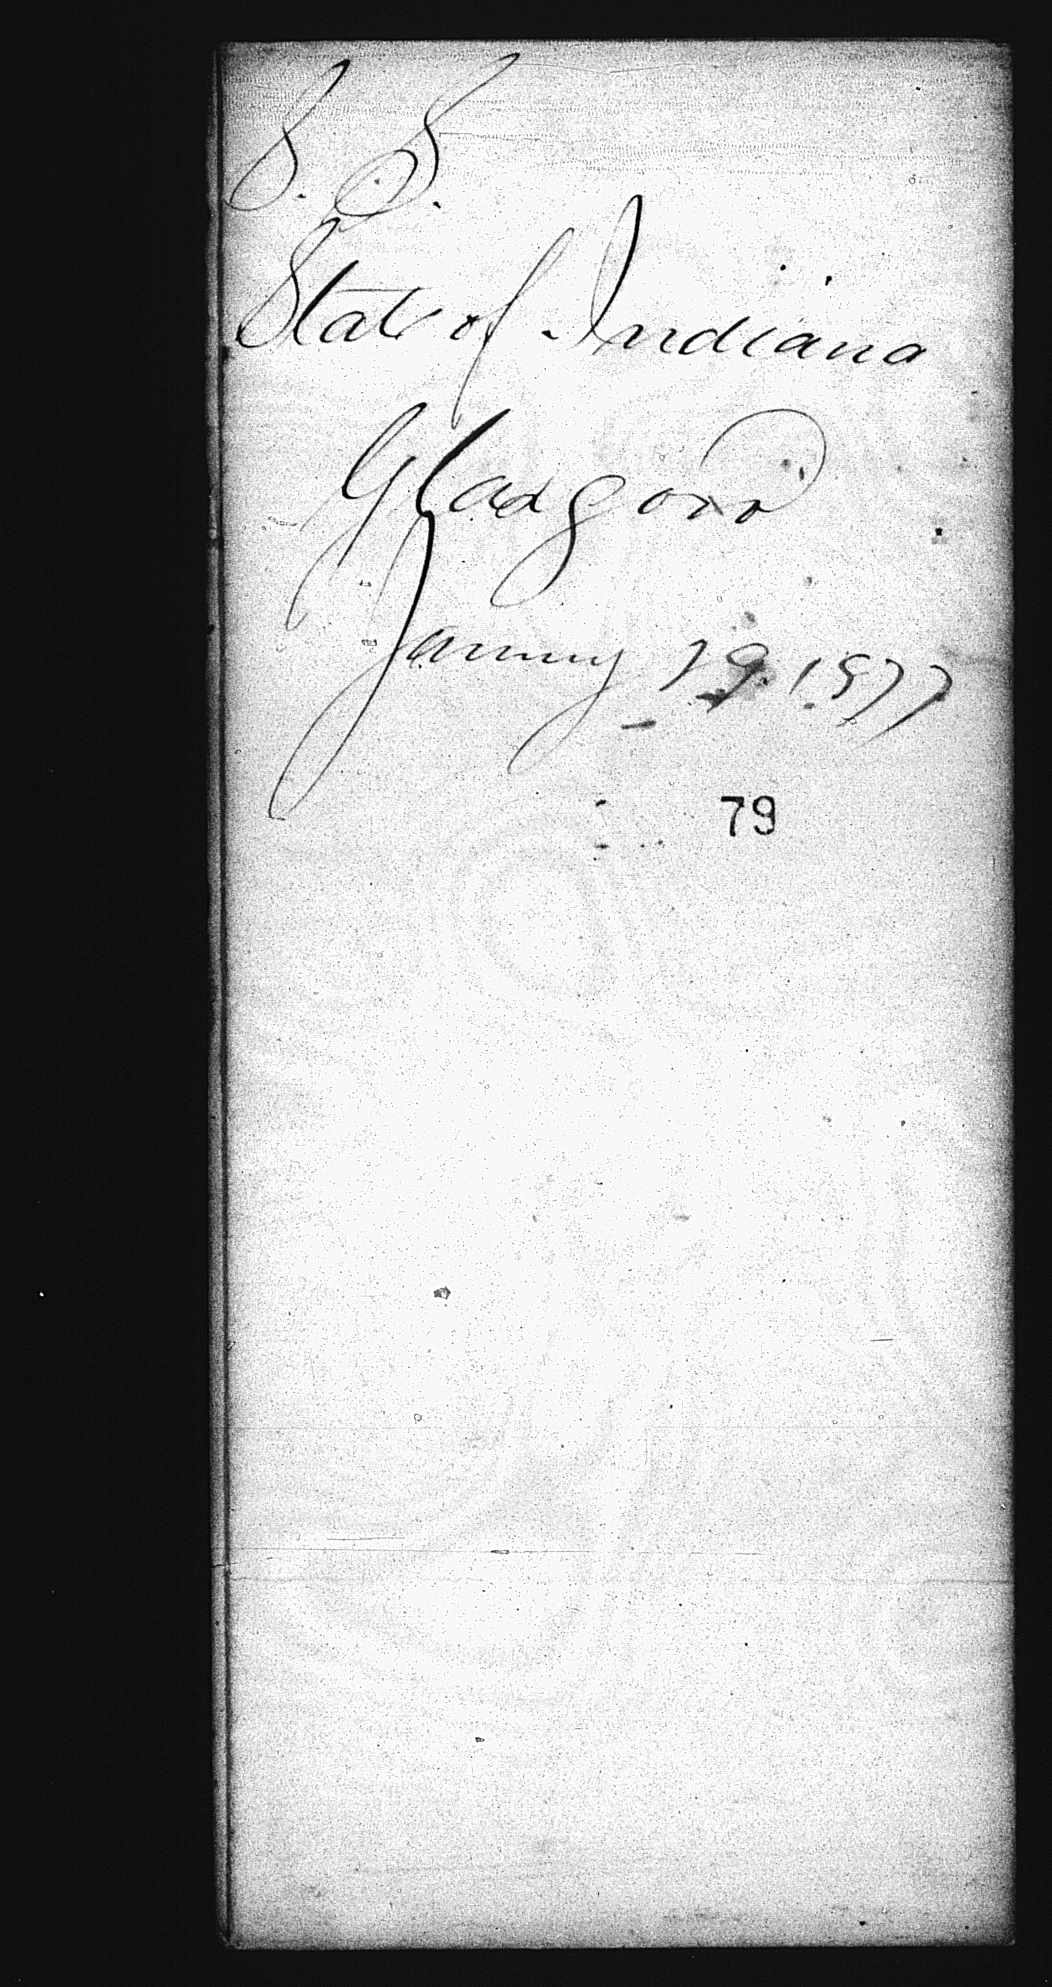 S. S.
State of Indiana
Glasgow
January 19. 1877
79